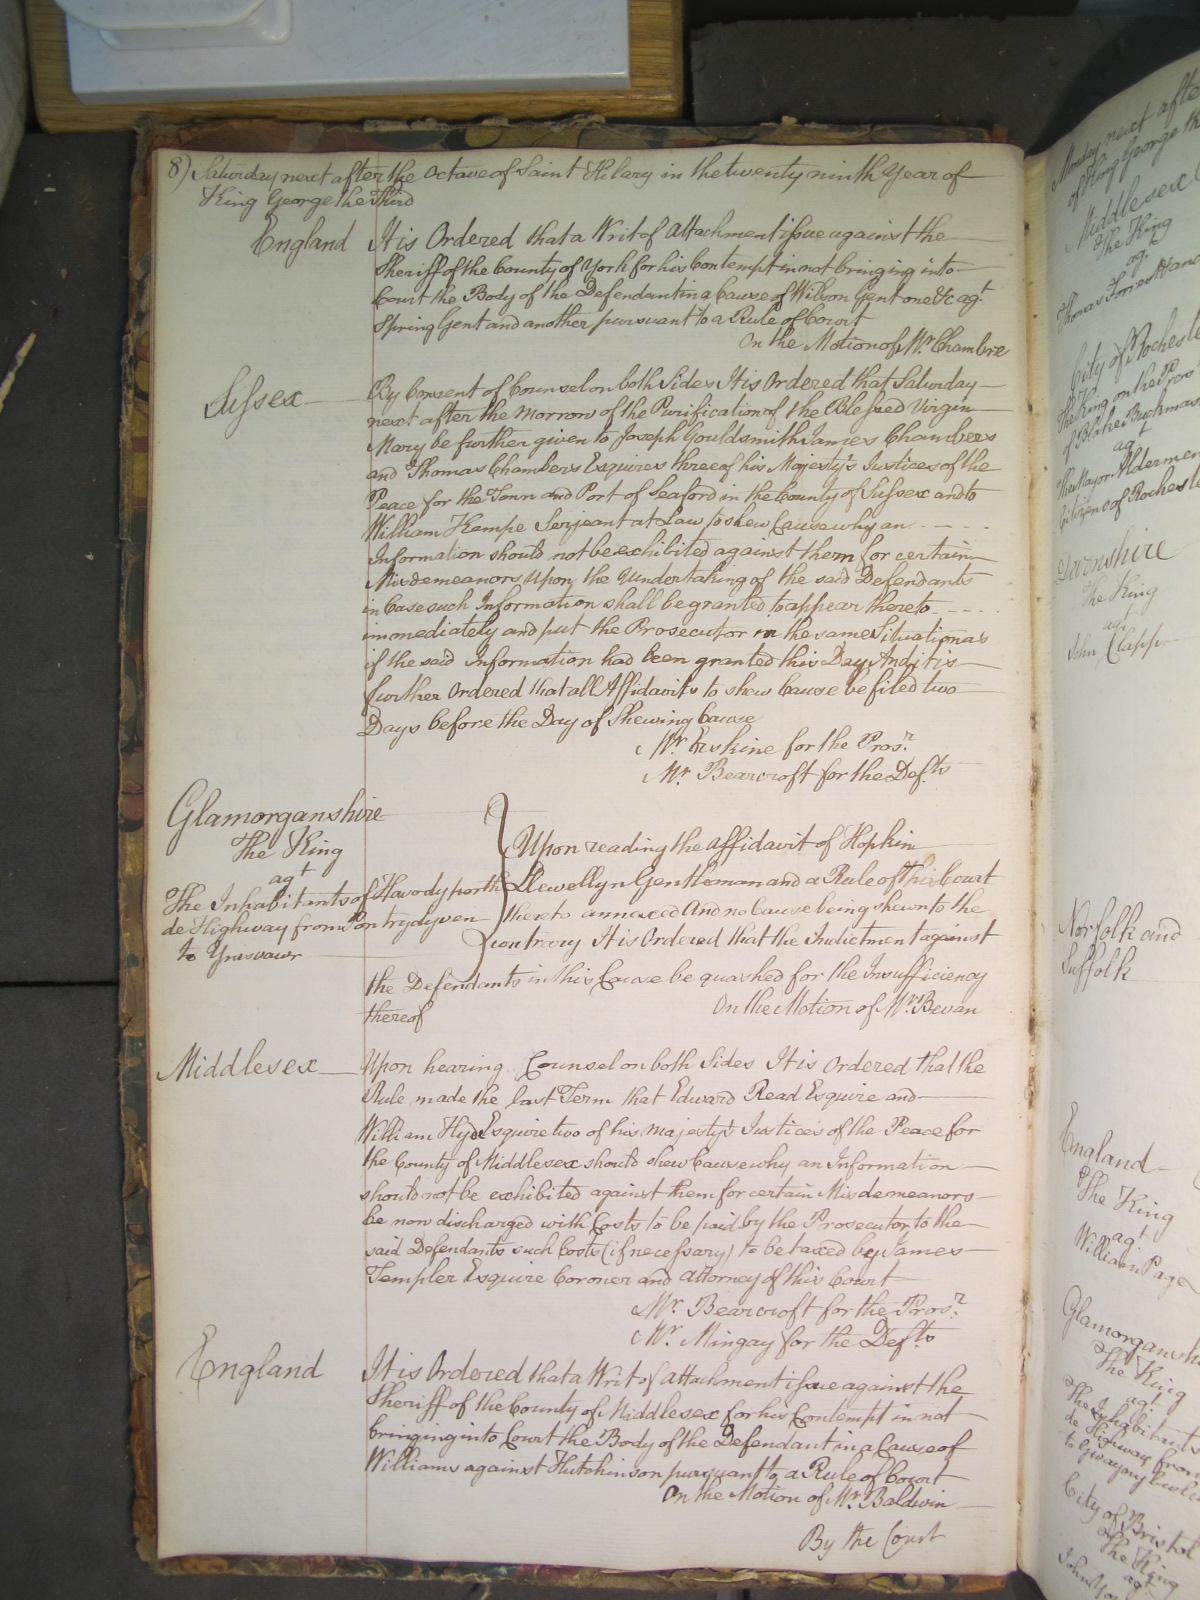 8) Saturday next after the Octave of Saint Hilary in the twenty ninth Year of
King George the Third
England It is Ordered that a Writ of Attachment issue against the
Sheriff of the County of York for his Contempt in not bringing into
Court the Body of the Defendant in a Cause of Wilson Gent one &c agt.
Spring Gent and another pursuant to a Rule of Court
On the Motion of Mr. Chambre
Sussex By Consent of Counsel on both Sides It is Ordered that Saturday
next after the Morrow of the Purification of the Blessed Virgin
Mary be further given to Joseph Gouldsmith James Chambers
and Thomas Chambers Esquires three of his Majesty's Justices of the
Peace for the Town and Port of Seaford in the County of Sussex and to
William Kempe Serjeant at Law to shew Cause why an
Information should not be exhibited against them for certain
Misdemeanors Upon the Undertaking of the said Defendants
in Case such Information shall be granted to appear thereto
immediately and put the Prosecutor in the same Situation as
if the said Information had been granted this Day And it is
further Ordered that all Affidavits to shew Cause be filed two
Days before the Day of Shewing Cause
Mr. Erskine for the Prosr.
Mr. Bearcroft for the Defts
Glamorganshire
The King
agt
The Inhabitants of Havodyporth
de Highway from Pontrydyven
to Ynisvawr
Upon reading the Affidavit of Hopkin
Llewellyn Gentleman and a Rule of This Court
thereto annexed And no Cause being shewn to the
contrary It is Ordered that the Indictment against
the Defendants in this Cause be quashed for the Insufficiency
thereof On the Motion of Mr. Bevan
Middlesex Upon hearing Counsel on both Sides It is Ordered that the
Rule made the last Term that Edward Read Esquire and
William Hyde Esquire two of his Majesty's Justices of the Peace for
the County of Middlesex should shew Cause why an Information
should not be exhibited against them for certain Misdemeanors
be now discharged with Costs to be paid by the Prosecutor to the
said Defendants such Costs (if necessary) to be taxed by James
Templer Esquire Coroner and Attorney of this Court
Mr. Bearcroft for the Prosr.
Mr. Mingay for the Defts
England It is Ordered that a Writ of Attachment issue against the
Sheriff of the County of Middlesex for his Contempt in not
bringing into Court the Body of the Defendant in a Cause of
Williams against Hutchinson pursuant to a Rule of Court
On the Motion of Mr. Baldwin
By the Court
Monday next after
of King George th
Middlesex
The King
agt
Thomas
City of Rocheste
The King on the
of Blake Buchman
agt
The Mayor Aldermen
Citizens of Rocheste
Devonshire
The King
agt
John Clapp
Norfolk and
Suffolk
England
The King
agt
William Page
Glamorgansh
The King
agt
The Inhabitants
de Highway from
to
City of Bristol
The King
agt
John